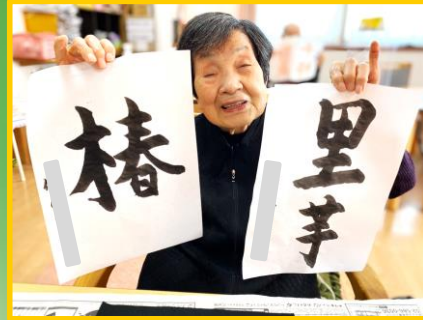 椿
里芋